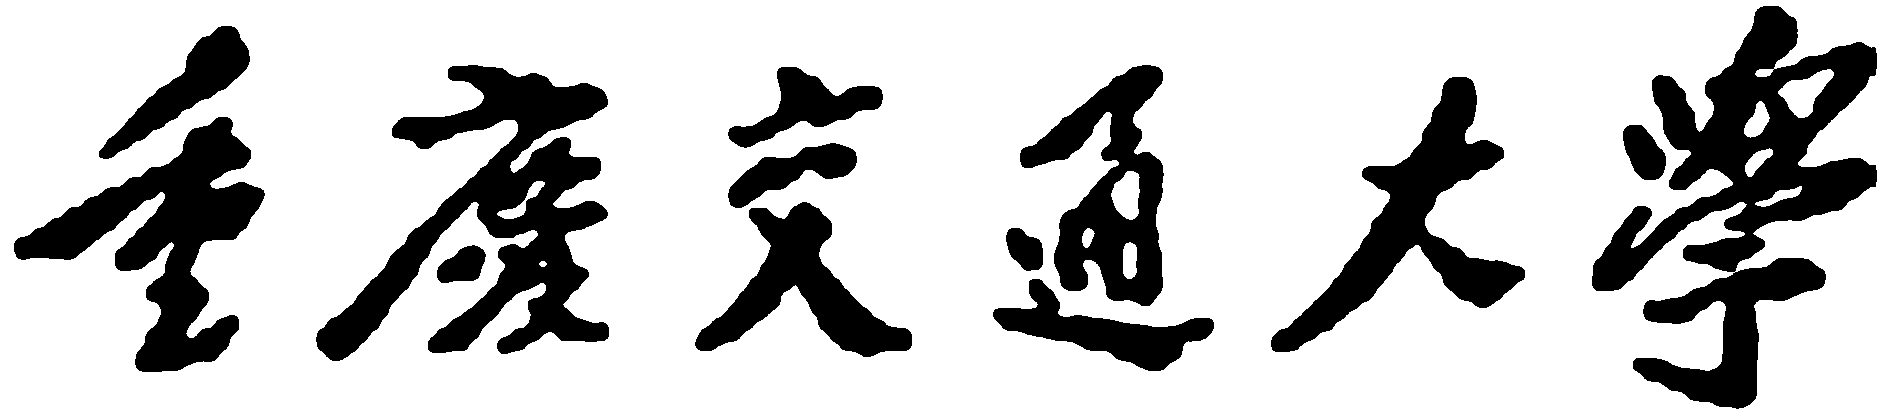 重慶交通大學